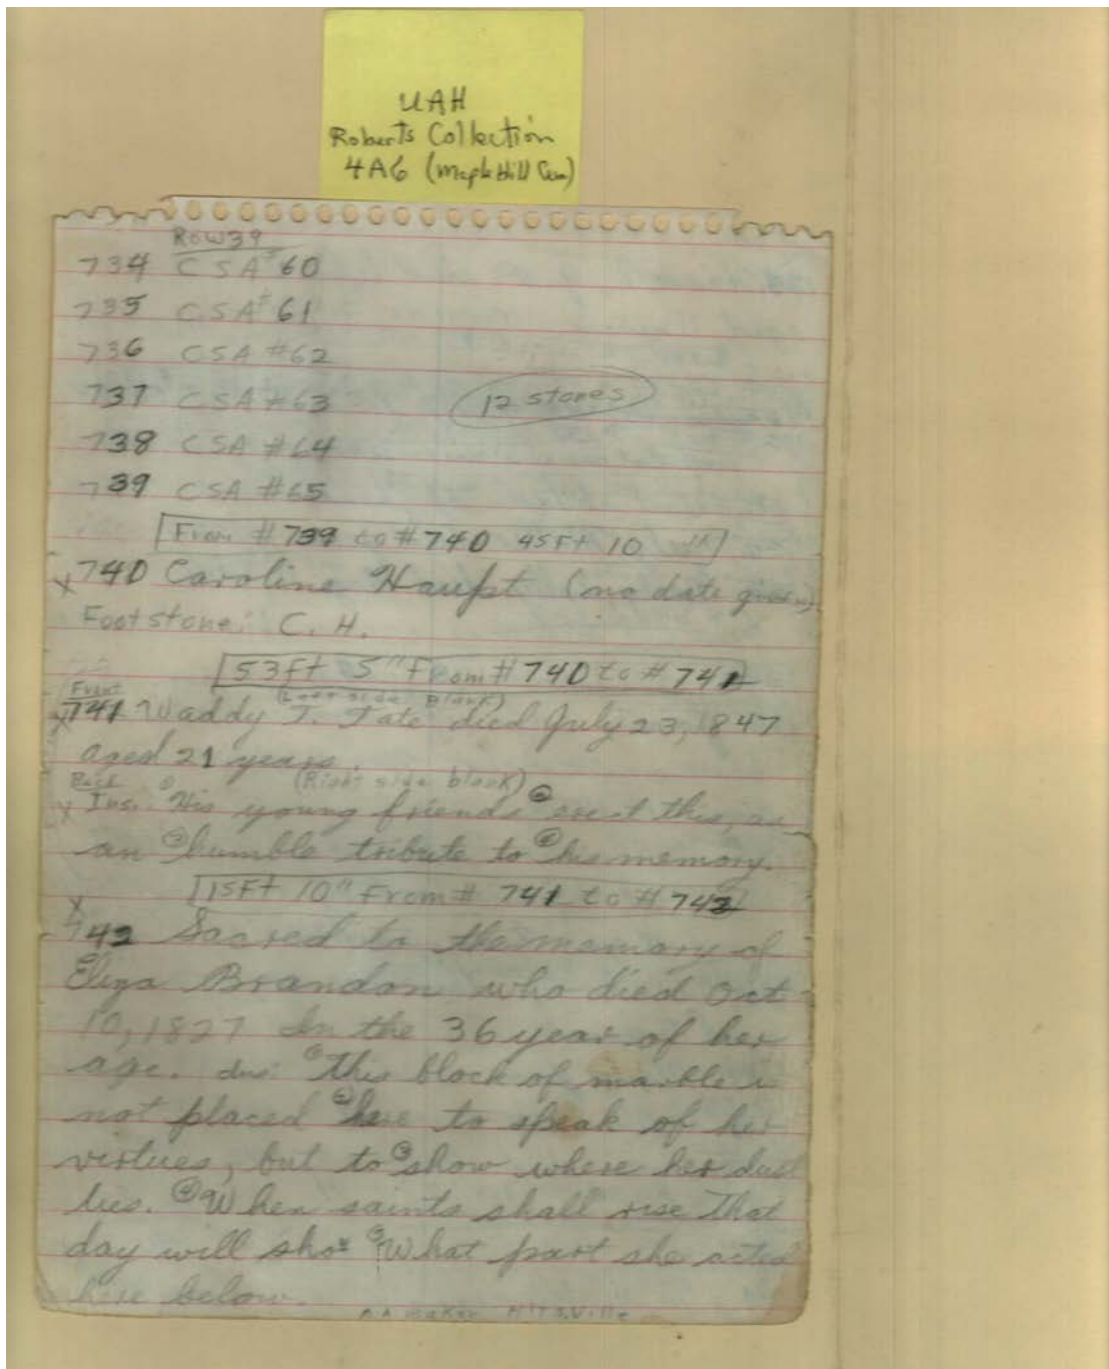 UAH
Roberts Collection
4A6 (Maple Hill Cem)
ROW 39
734 CSA #60
735 CSA #61
736 CSA #62
737 CSA #63
12 stones
738 CSA #64
739 CSA #65
From #739 to #740 45Ft 10 In
x 740 Caroline Haupt (no date given)
Footstone: C. H.
53Ft 5" From #740 to #741
Front (Left side Blank)
x 741 Waddy T. Tate died July 23, 1847
aged 21 years.
Back (Right side blank)
x Ins. His young friends ② erect this, as
an ③ humble tribute to ④ his memory.
15Ft 10" From # 741 to # 742
x
742 Sacred to the memory of
Eliza Brandon who died Oct
10, 1827 In the 36 year of her
age. Ins: ① This block of marble is
not placed ② here to speak of her
virtues, but to ③ show where her dust
lies. ④ When saints shall rise That
day will show ⑤ What part she acted
here below.
Baker H'ts.Ville